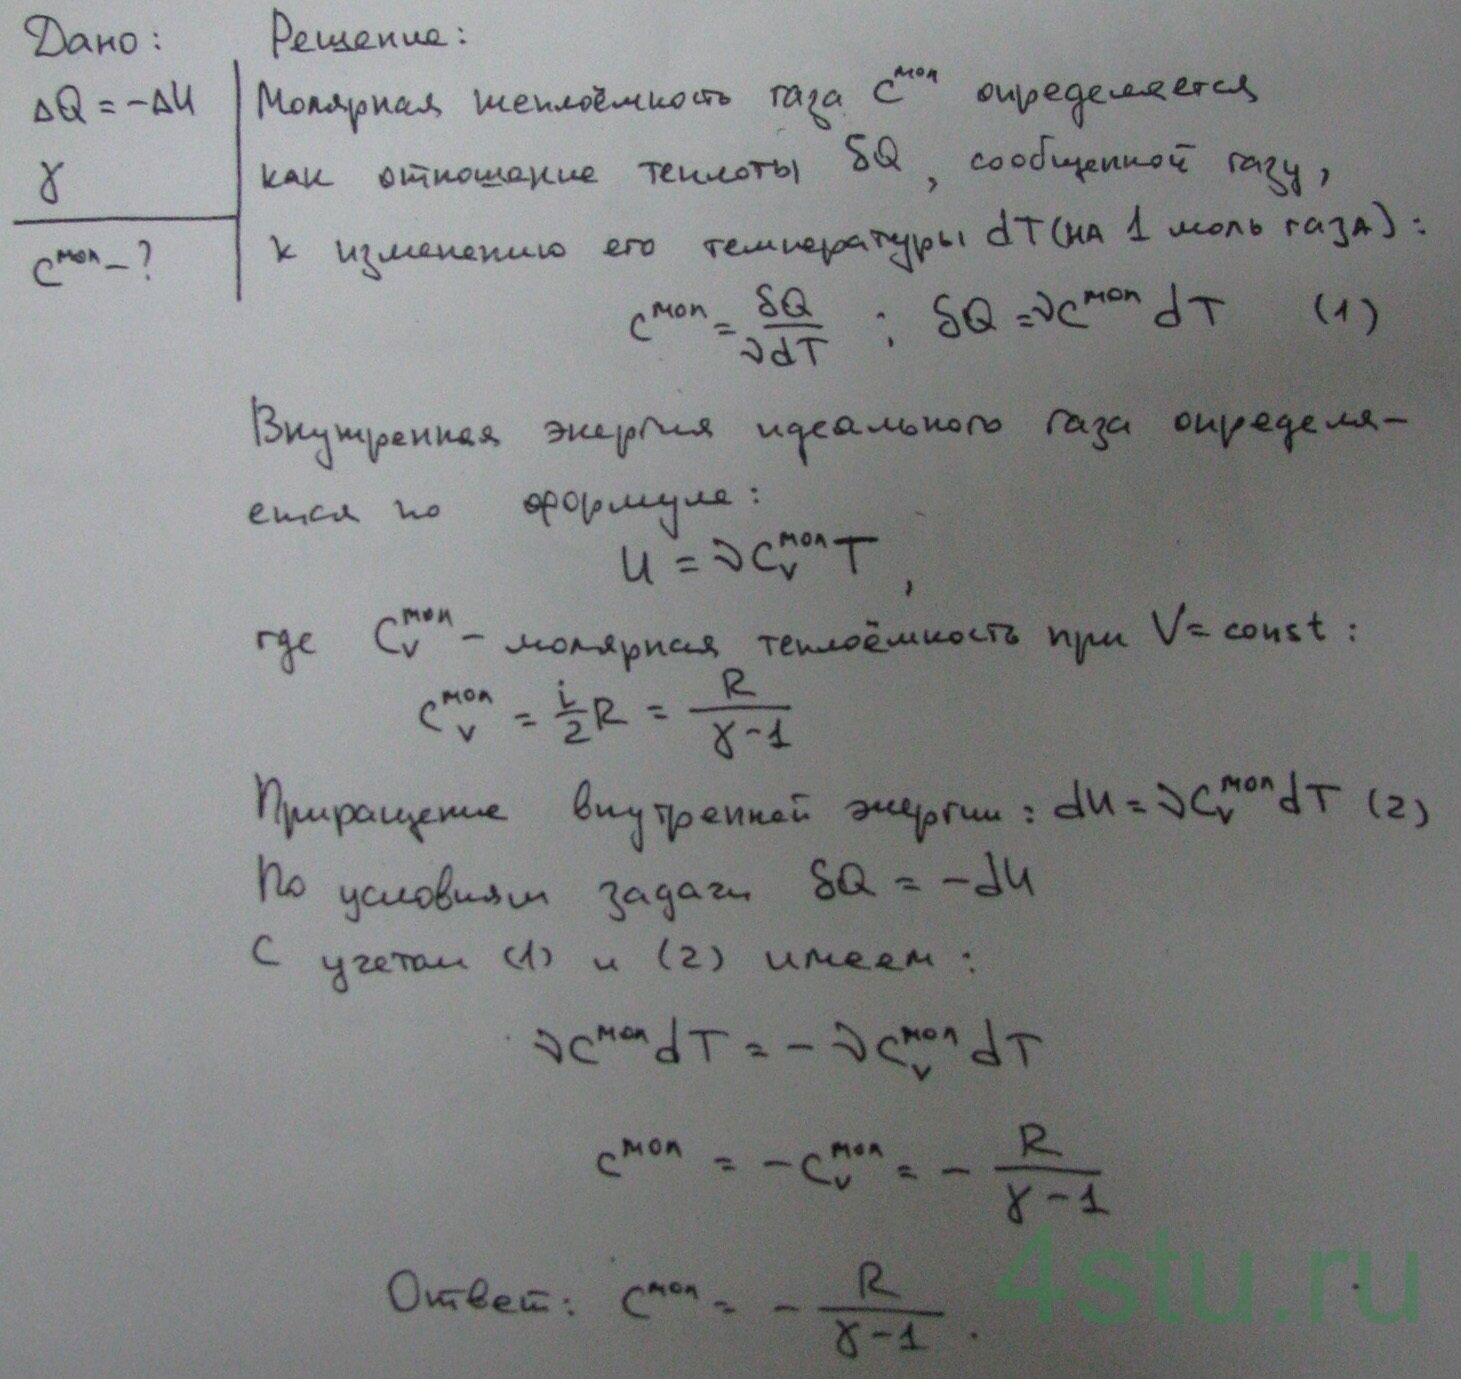 Дано:
ΔQ = -ΔU
γ
C^мол - ?
Решение:
Молярная теплоёмкость газа C^мол определяется
как отношение теплоты δQ, сообщенной газу,
к изменению его температуры dT (на 1 моль газа):
C^мол = δQ/(νdT) ; δQ = νC^мол dT (1)
Внутренняя энергия идеального газа определя-
ется по формуле:
U = νC_V^мол T,
где C_V^мол - молярная теплоёмкость при V = const:
C_V^мол = i/2 R = R/(γ-1)
Приращение внутренней энергии: dU = νC_V^мол dT (2)
По условиям задачи δQ = -dU
С учетом (1) и (2) имеем:
νC^мол dT = - νC_V^мол dT
C^мол = -C_V^мол = - R/(γ-1)
Ответ: C^мол = - R/(γ-1).
4stu.ru